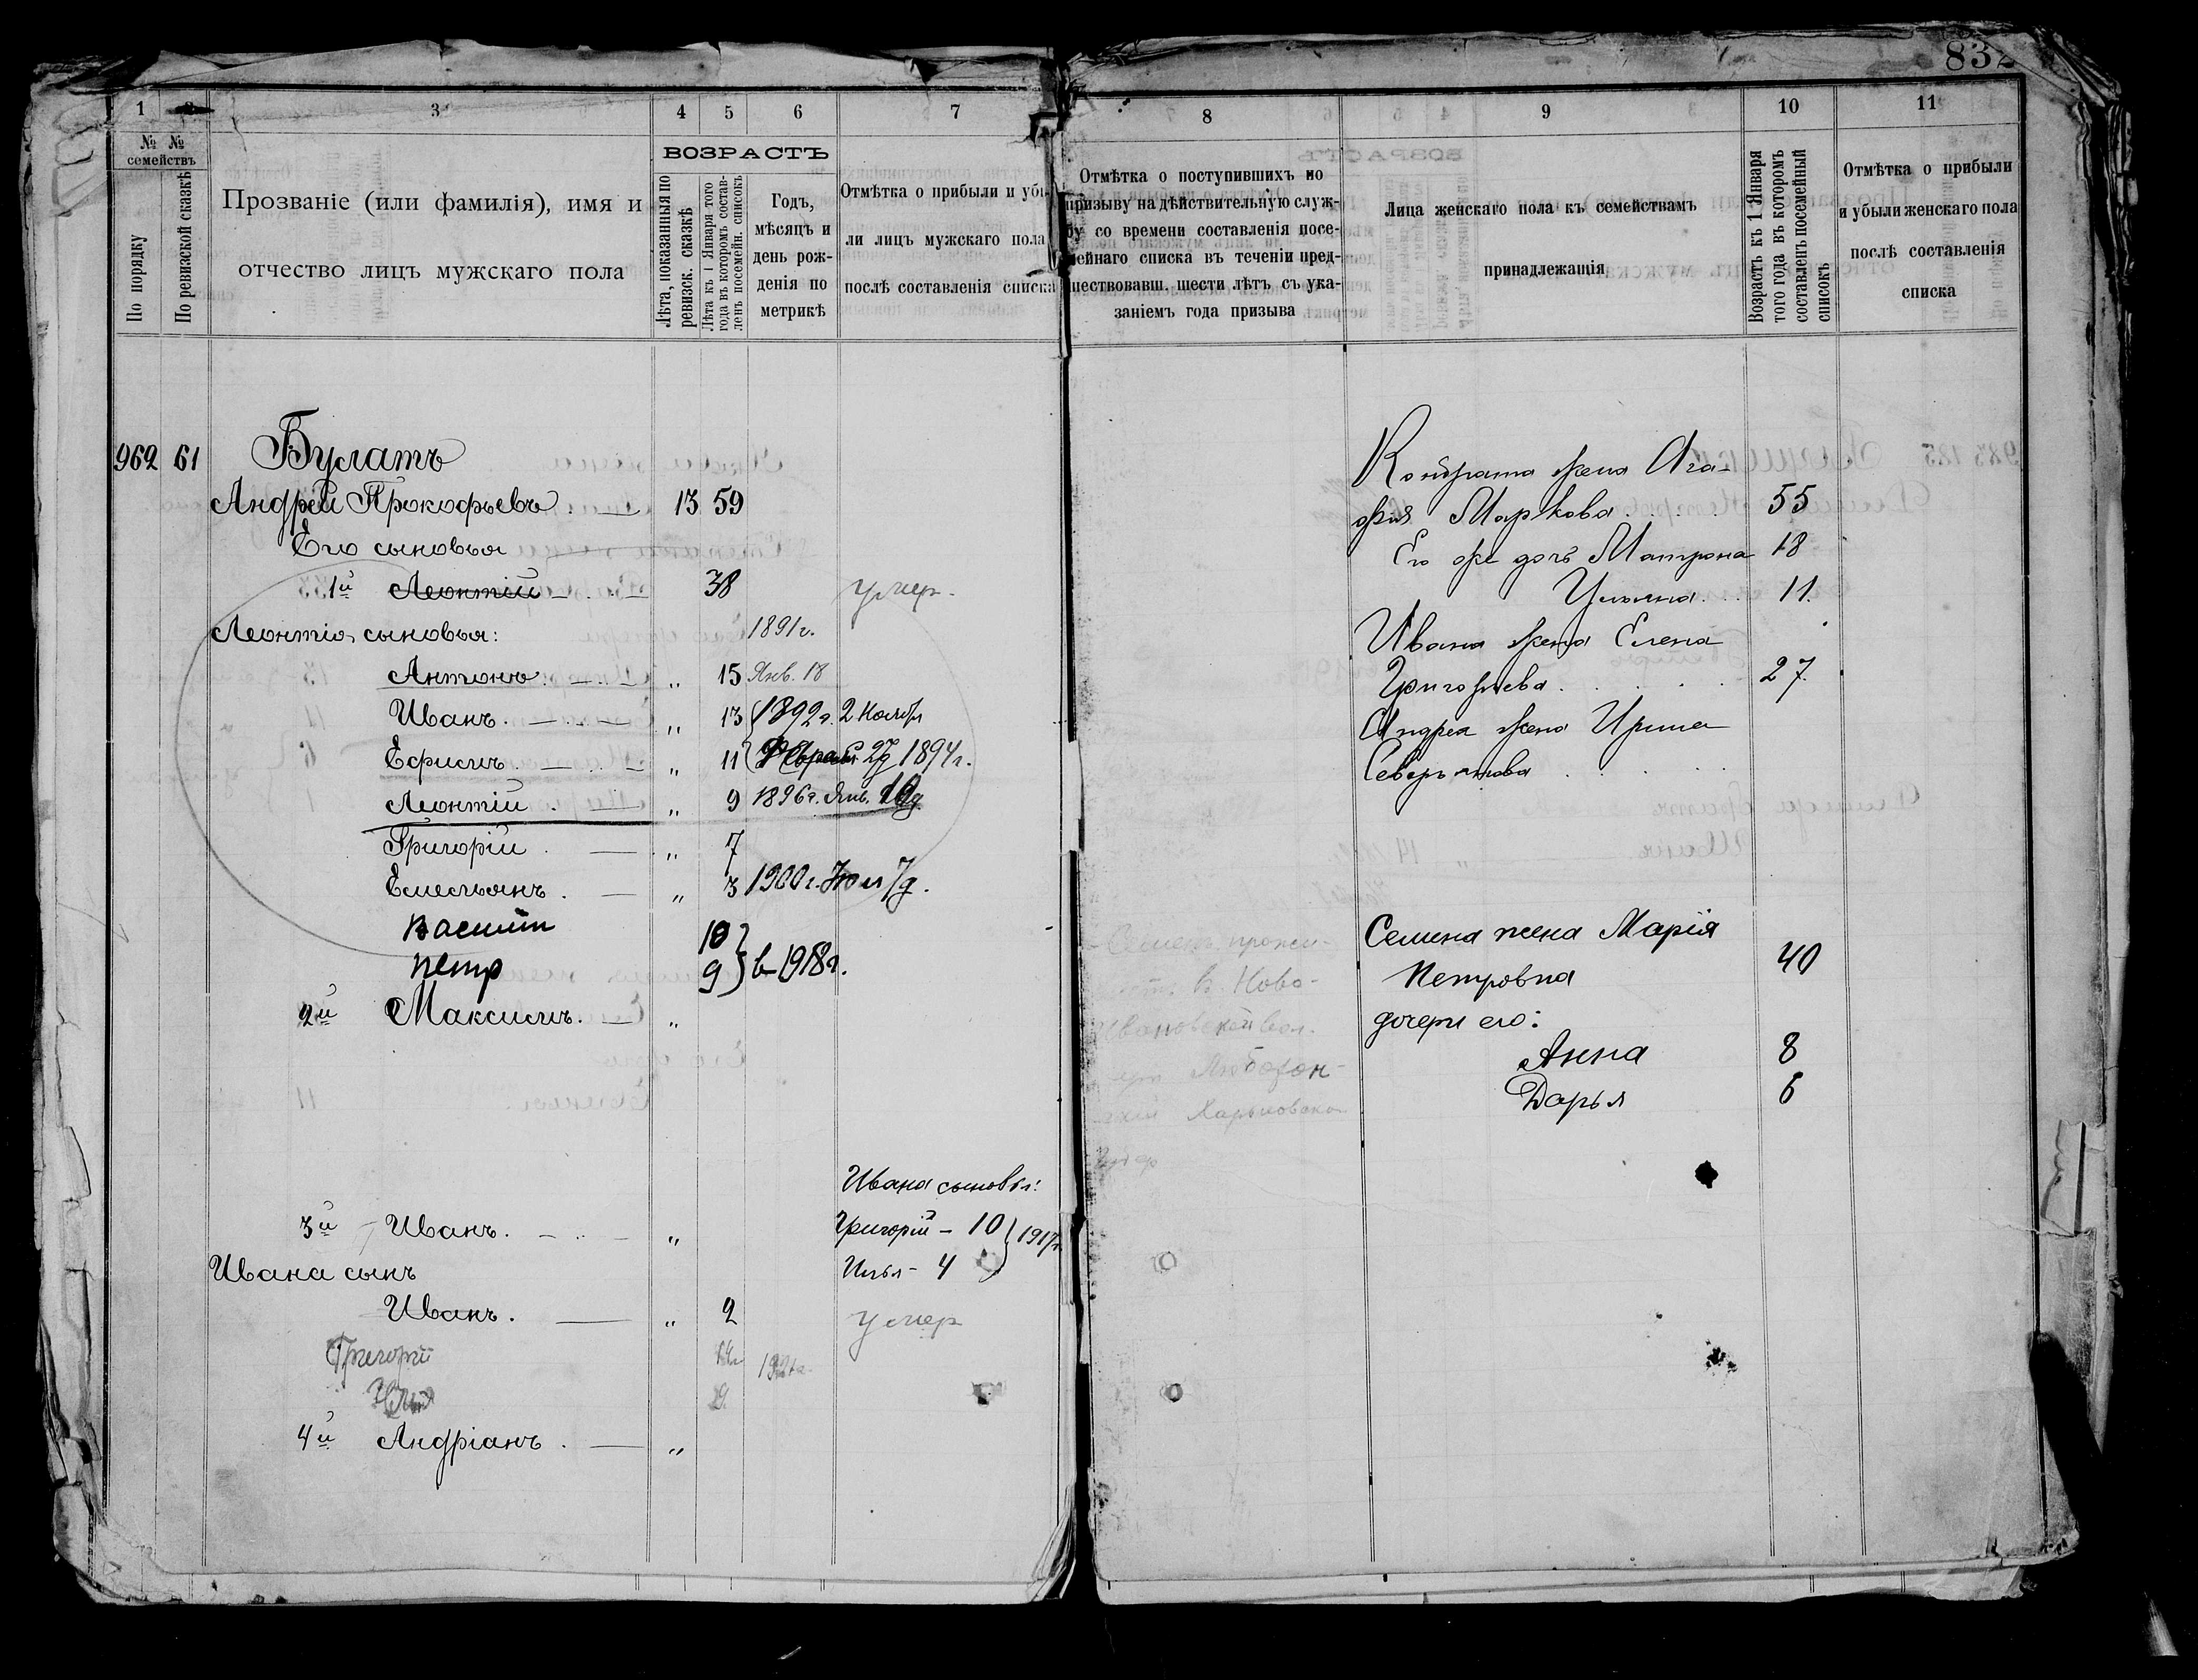 832
1
3
4
5
6
7
№ №
семействъ
По порядку
По ревизской сказкѣ
Прозваніе (или фамилія), имя и
отчество лицъ мужскаго пола
ВОЗРАСТЪ
Лѣта, показанныя по
ревизск. сказкѣ
Лѣта къ 1 Января того
года въ которомъ состав-
ленъ посемейн. списокъ
Годъ,
мѣсяцъ и
день рож-
денія по
метрикѣ
Отмѣтка о прибыли и убы-
ли лицъ мужскаго пола
послѣ составленія списка
962 61 Булатъ
Андрей Прокофьевъ 13 59
Его сыновья
1й Леонтій 38 умер.
Леонтія сыновья: 1891г.
Антонъ „ 15 Янв. 18
Иванъ „ 13 1892г. 2 Ноября
Ефимъ „ 11 27 1894г.
Леонтій „ 9 1896г. Янв. 10д
Григорій „ 7
Емельянъ „ 3 1900г. 7д.
Василий 10
Петр 9 } в 1918г.
2й Максимъ „
Ивана сыновья:
3й Иванъ „ Григорій - 10 } 1917г.
Ивана сынъ Илья - 4
Иванъ „ 2 умер
Григорій
4й Андріанъ „
8
9
10
11
Отмѣтка о поступившихъ по
призыву на дѣйствительную служ-
бу со времени составленія посе-
мейнаго списка въ теченіи пред-
шествовавш. шести лѣтъ съ ука-
заніемъ года призыва
Лица женскаго пола къ семействамъ
принадлежащія
Возрастъ къ 1 Января
того года въ которомъ
составленъ посемейный
списокъ
Отмѣтка о прибыли
и убыли женскаго пола
послѣ составленія
списка
Кондрата жена Ага-
фія Маркова 55
Его же дочь Матрона 18
Ульяна 11
Ивана жена Елена
Григорьева 27
Андрея жена Ирина
Северьянова
Семена жена Марія
Петровна 40
дочери его:
Анна 8
Дарья 6
Семенъ прожи-
в. Ново-
Ивановской вол.
Харьковской